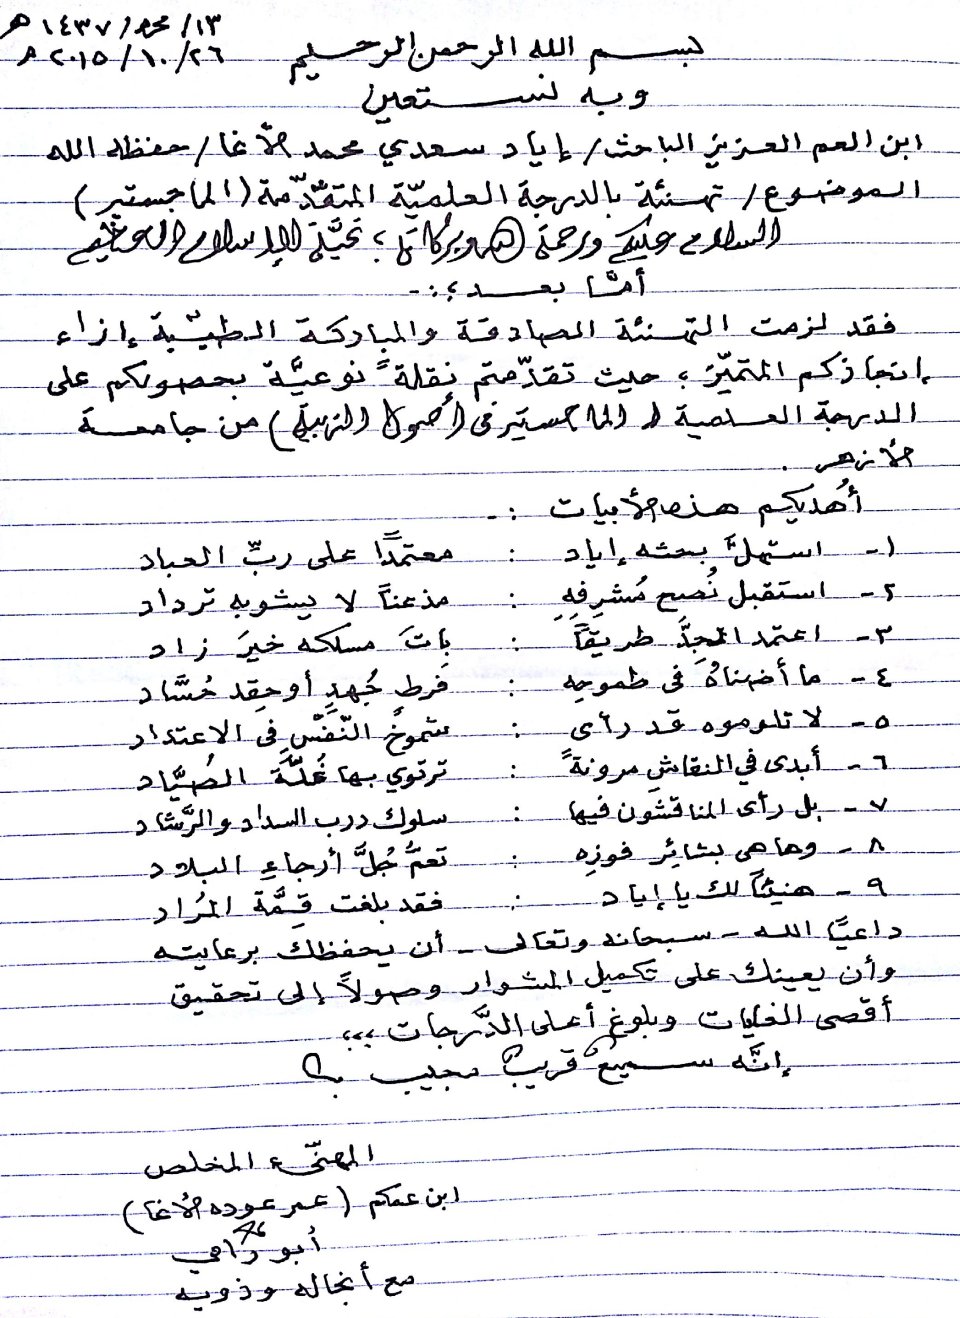 ١٣/ محرم/ ١٤٣٧ هـ
٢٦/ ١٠/ ٢٠١٥ م
بسم الله الرحمن الرحيم
وبه نستعين
ابن العم العزيز الباحث/ إياد سعدي محمد الأغا/ حفظه الله
الموضوع/ تهنئة بالدرجة العلميّة المتقدّمة (الماجستير)
السلام عليكم ورحمة الله وبركاته؛ تحيَّة الإسلام العظيم
أمَّا بعد؛:-
فقد لزمت التهنئة الصادقة والمباركة الطيّبة إزاء
إنجازكم المتميّز؛ حيث تقدّمتم نقلةً نوعيَّة بحصولكم على
الدرجة العلمية (الماجستير في أصول التربية) من جامعة
الأزهر.
أُهديكم هذه الأبيات :-
١- استهلَّ بحثه إياد : معتمدًا على ربِّ العباد
٢- استقبل نُصح مُشرِفِهِ : مذعناً لا يشوبه ترداد
٣- اعتمد المجِدَّ طريقاً : باتَ مسلكه خيرَ زاد
٤- ما أضناهُ في طموحِه : فرطِ جُهدٍ أو حِقد حُسَّاد
٥- لا تلوموه قد رأى : شموخُ النّفسِ في الاعتداد
٦- أبدى في النقاشِ مرونةً : ترتوي بها غُلَّةَ الصُيَّاد
٧- بل رأى المناقشون فيها : سلوك درب السداد والرَّشاد
٨- وها هي بشائِر فوزِه : تعمُّ جُلَّ أرجاءِ البلاد
٩- هنيئاً لك يا إياد : فقد بلغت قِمَّة المُراد
داعيًا الله - سبحانه وتعالى - أن يحفظك برعايته
وأن يعينك على تكميل المشوار وصولاً إلى تحقيق
أقصى الغايات وبلوغ أعلى الدَّرجات ،،،
إنَّه سميعٌ قريبٌ مجيب
المهنّىء المخلص
ابن عمكم (عمر عوده الأغا)
أبو رامي
مع أنجاله وذويه